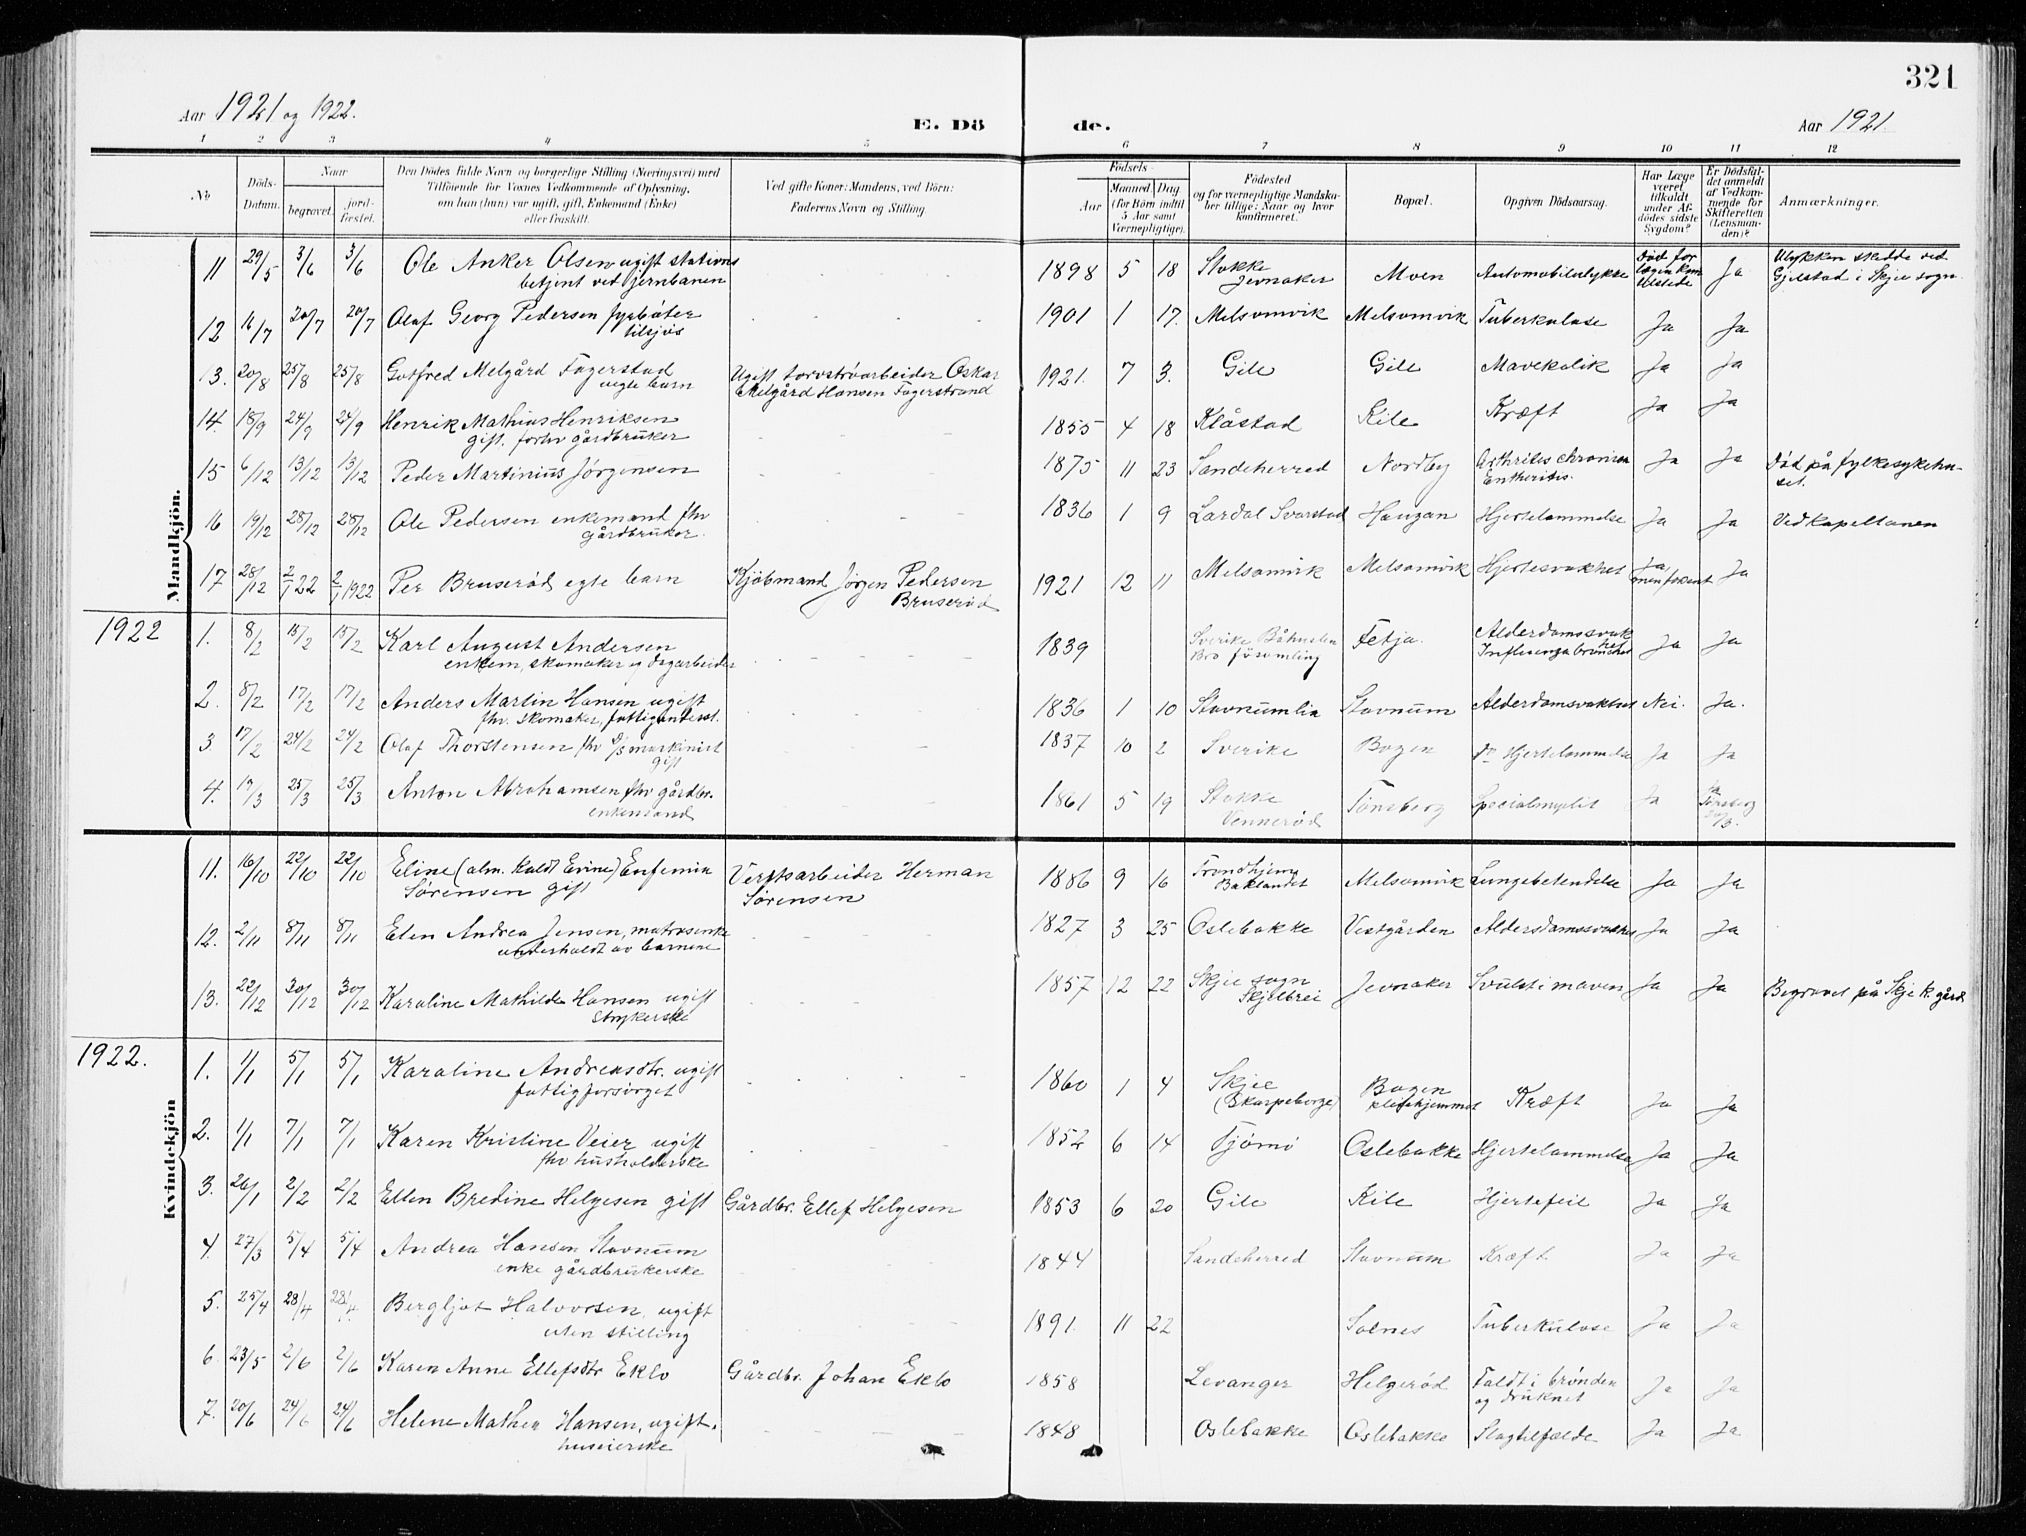 321
Aar 1921 og 1922.
E. Dö de.
Aar 1921.
1 2 3 4 5 6 7 8 9 10 11 12
No
Döds-Datum.
Naar
begravet.
jord-fæstet.
Den Dödes fulde Navn og borgerlige Stilling (Næringsvei) med
Tilföiende for Voxnes Vedkommende af Oplysning,
om han (hun) var ugift, gift, Enkemand (Enke)
eller fraskilt.
Ved gifte Koner: Mandens, ved Börn:
Faderens Navn og Stilling.
Födsels-
Aar
Maaned. Dag
(for Börn indtil
5 Aar samt
Værnepligtige).
Födested
og for værnepligtige Mandska-
ber tillige: Naar og hvor
konfirmeret.
Bopæl.
Opgiven Dödsaarsag.
Har Læge
været
tilkaldt
under Af-
dödes sidste
Sygdom?
Er Dödsfal-
det anmeldt
af Vedkom-
mende for
Skifteretten
(Lensman-
den)?
Anmærkninger.
Mandkjön.
11 29/5 3/6 3/6 Ole Anker Olsen ugift stations
betjent ved jernbanen
1898 5 18 Stokke
Jevnaker
Moen Automobilulykke Død før
lægen kom
tilstede
Ja Ulykken skedde ved
Gjelstad i Skjee sogn.
12 16/7 20/7 20/7 Olaf Georg Pedersen fyrbøter
tilsjøs
1901 1 17. Melsomvik Melsomvik Tuberkulose Ja Ja
13. 20/8 25/8 25/8 Gotfred Melgård Fagerstad
uegte barn
Ugift torvstrøarbeider Oskar
Melgård Hansen Fagerstrand
1921. 7 3. Gile Gile Mavekolik Ja Ja
14. 18/9 24/9 24/9 Henrik Mathius Henriksen
gift. forhv gårdbruker
1855 4 18 Klåstad Kile Kræft Ja Ja
15 6/12 13/12 13/12 Peder Martinius Jørgensen
1875 11 23 Sandeherred Nordby Arthrites chronica
Entheritis.
Ja Ja Død på fylkesykehu-
set.
16 19/12 28/12 28/12 Ole Pedersen enkemand fhv
gårdbruker.
1836 1 9 Lardal Svarstad Haugan Hjertelammelse Ja Ja Ved kapellanen
17 28/12 2/1 22 2/1 1922 Per Bruserød egte barn Kjøbmand Jørgen Pedersen
Bruserød
1921 12 11 Melsomvik Melsomvik Hjertesvakhet Ja
men forsent
Ja
1922
1. 8/2 15/2 15/2 Karl August Andersen
enkem, skomaker og dagarbeider
1839 Sverike Båhuslen
Bro församling
Fetja. Alderdamssvak
het
Influenza bronchit
Ja Ja
2. 8/2 17/2 17/2 Anders Martin Hansen ugift
fhv. skomaker, fattigunderst.
1836 1 10 Stavnumlia Stavnum Alderdamsvakhet Nei. Ja.
3 17/2 24/2 24/2 Olaf Thorstensen fhv D/S maskinist
gift
1837 10 2 Sverike Bogen do Hjertelammelse Ja Ja
4. 17/3 25/3 25/3 Anton Abrahamsen fhv gårdbr.
enkemand
1861 5 19 Stokke
Vennerød
Tønsberg Specialmyelit Ja Ja
Tønsberg
Kvindekjön
11. 16/10 22/10 22/10 Eline (alm. kaldt Evine) Eufemia
Sørensen gift
Verftsarbeider Herman
Sørensen
1886 9 16 Trondhjem
Baklandet
Melsomvik Lungebetendelse Ja Ja
12. 2/11 8/11 8/11 Elen Andrea Jensen, matrosenke
underholdt av barnene
1827 3 25 Oslebakke Vestgården Aldersdamssvakhet Ja Ja
13. 22/12 30/12 30/12 Karoline Mathilde Hansen ugift
strykerske
1857 12 22 Skjee sogn
Skjelbrei
Jevnaker Svulst i maven Ja Ja Begravet på Skje k. gård
1922.
1. 1/1 5/1 5/1 Karoline Andreasdtr. ugift
fattigforsørget
1860 1 4 Skjee
(Skarpeborge)
Bogen
pleiehjemmet
Kræft Ja Ja
2. 1/1 7/1 7/1 Karen Kristine Veier ugift
fhv husholderske
1852 6 14 Tjømø Oslebakke Hjertelammelse Ja Ja
3. 26/1 2/2 2/2 Ellen Bredine Helgesen gift Gårdbr. Ellef Helgesen
1853 6 20 Gile Kile Hjertefeil Ja Ja
4. 27/3 5/4 5/4 Andrea Hansen Stavnum
enke gårdbrukerske
1844 Sandeherred Stavnum Kræft Ja Ja
5. 25/4 28/4 28/4. Bergljot Halvorsen, ugift
uten stilling
1891. 11 22 Solnes Tuberkulose Ja Ja
6. 23/5 2/6 2/6 Karen Anne Ellefsdtr Eklo Gårdbr. Johan Eklo
1858 Levanger Helgerød Faldt i brønden
og druknet
Ja Ja
7. 20/6 24/6 24/6 Helene Mathea Hansen, ugift.
huseierske
1848 Oslebakke Oslebakke Slagtilfælde Ja Ja